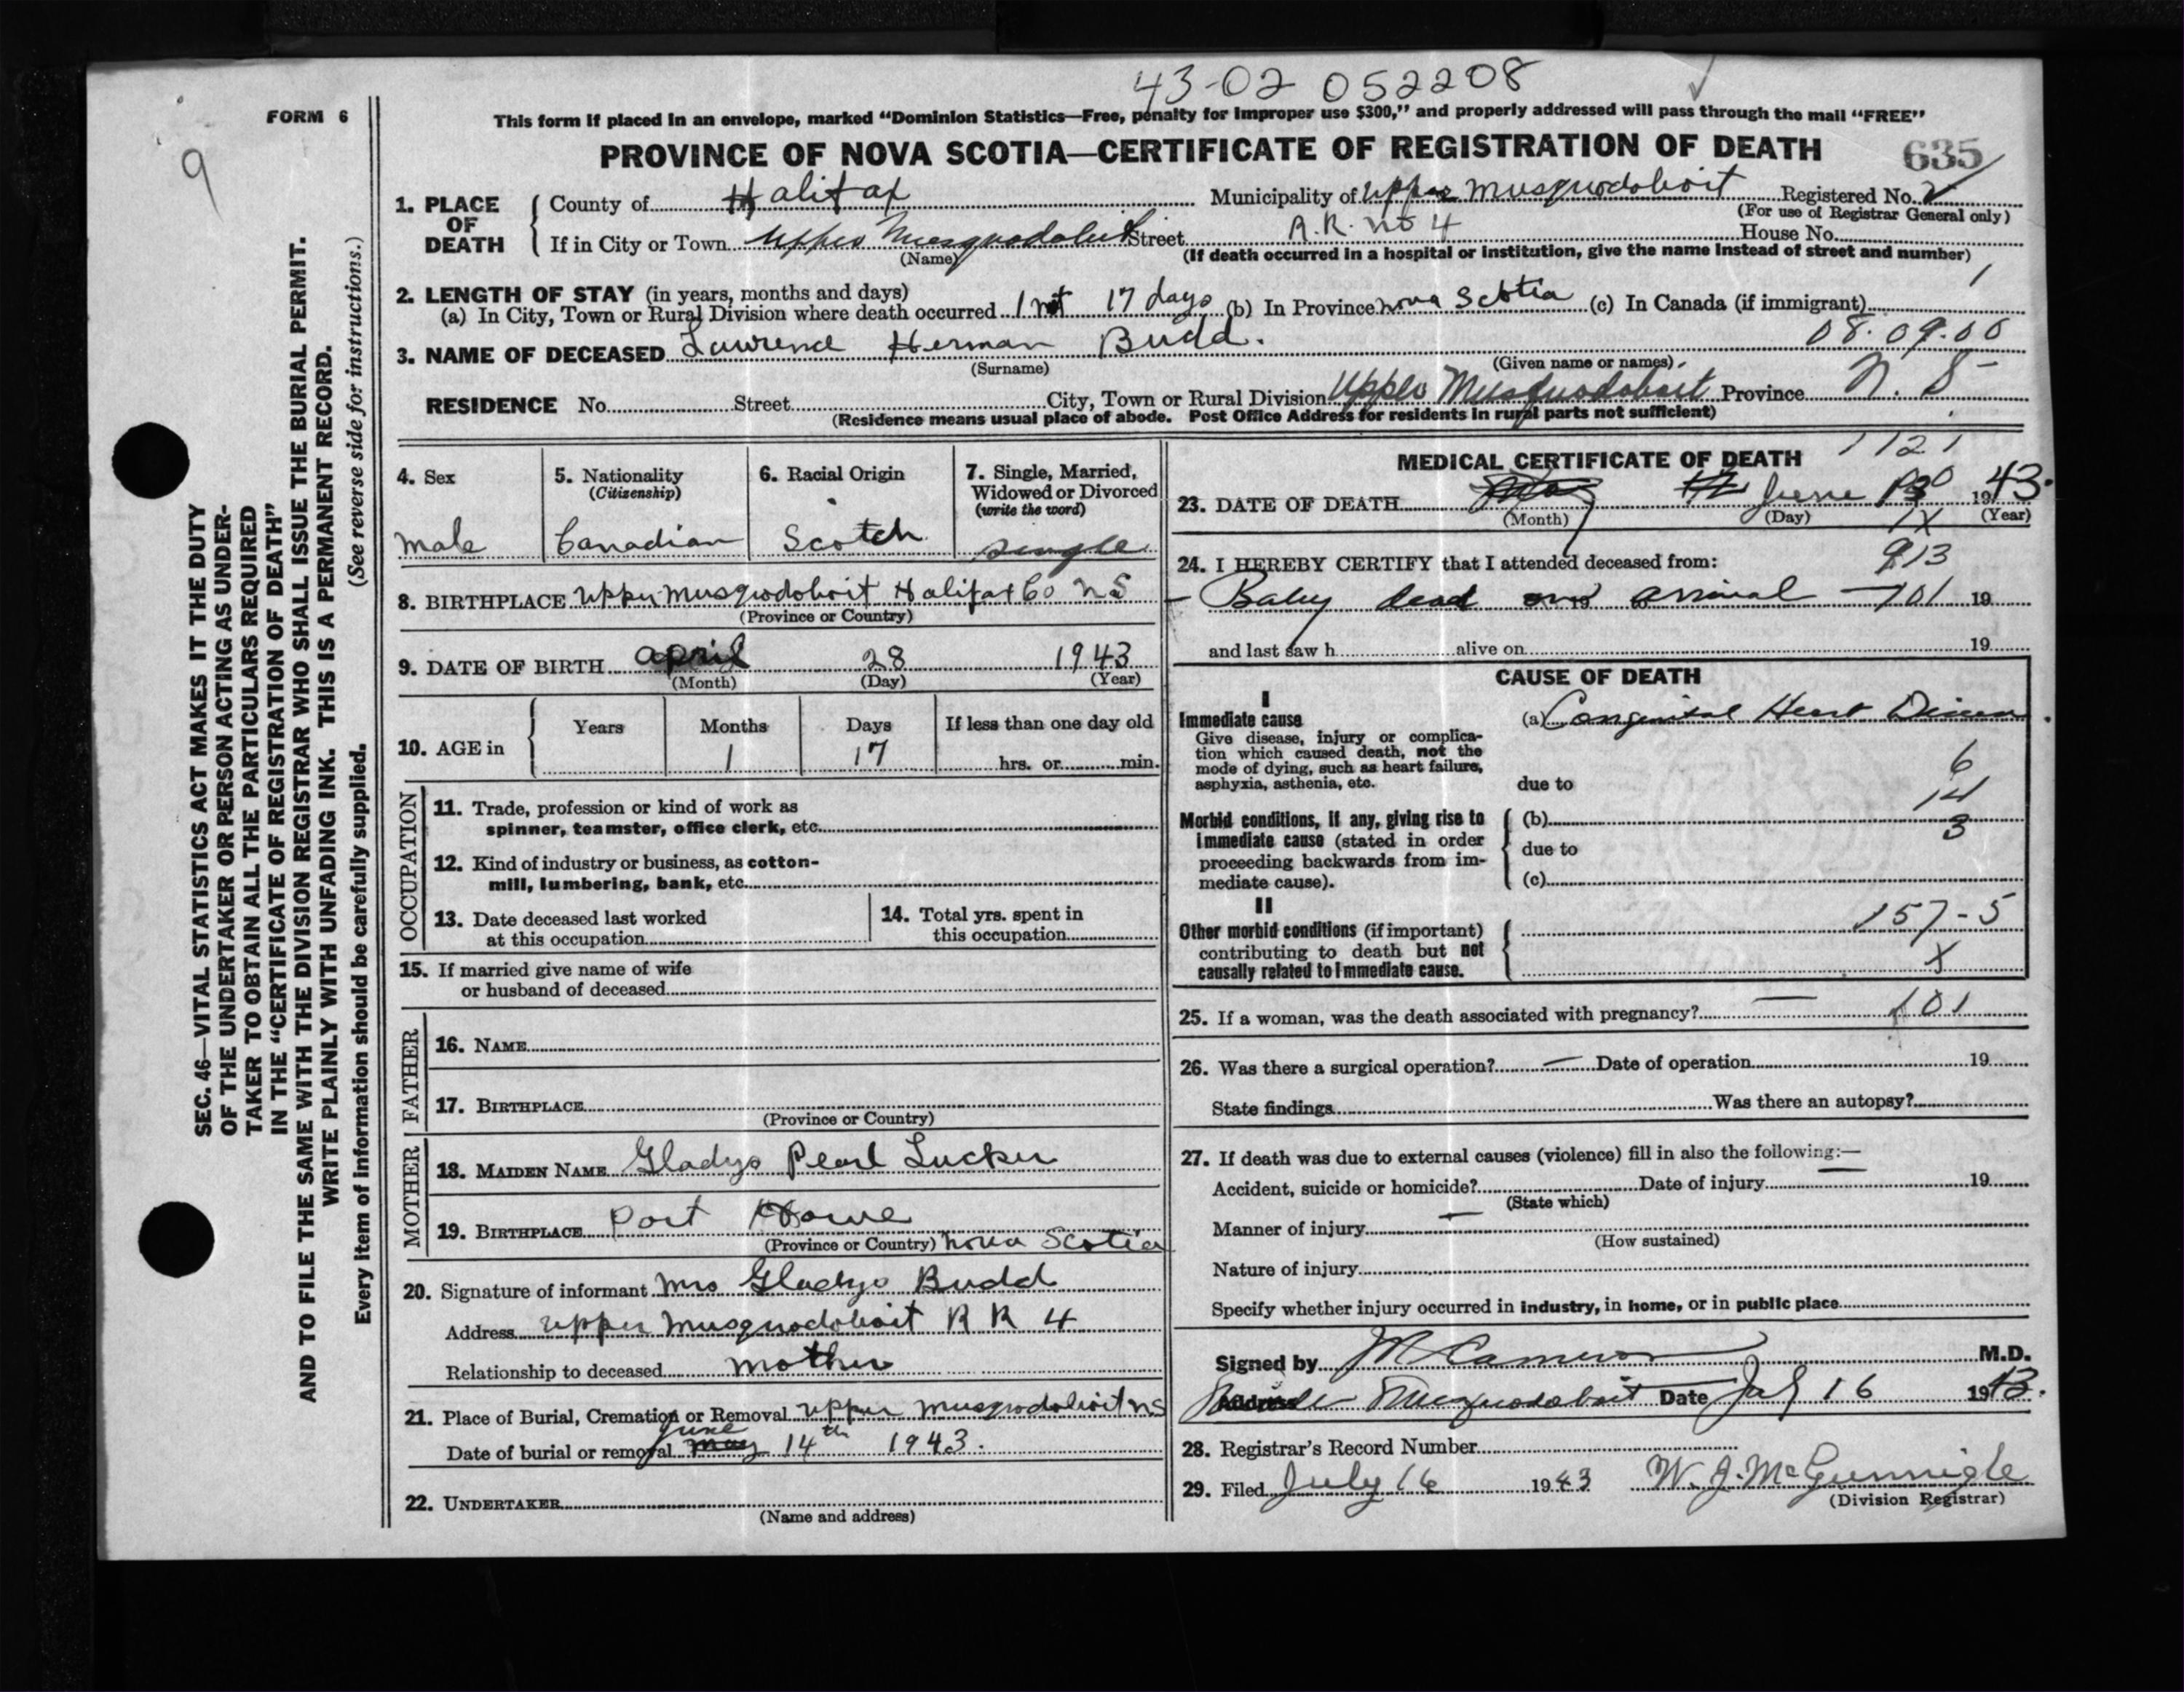 43-02 052208
FORM 6
This form if placed in an envelope, marked "Dominion Statistics—Free, penalty for improper use $300," and properly addressed will pass through the mail "FREE"
9
PROVINCE OF NOVA SCOTIA—CERTIFICATE OF REGISTRATION OF DEATH
635
1. PLACE OF DEATH
County of Halifax Municipality of Upper Musquodoboit Registered No. 2
(For use of Registrar General only)
If in City or Town Upper Musquodoboit Street R.R. no 4 House No.
(Name) (If death occurred in a hospital or institution, give the name instead of street and number)
1
2. LENGTH OF STAY (in years, months and days)
(a) In City, Town or Rural Division where death occurred 1 mt 17 days (b) In Province Nova Scotia (c) In Canada (if immigrant)
08.09.00
3. NAME OF DECEASED Lawrence Herman Budd.
(Surname) (Given name or names)
RESIDENCE No. Street City, Town or Rural Division Upper Musquodoboit Province N. S
(Residence means usual place of abode. Post Office Address for residents in rural parts not sufficient)
SEC. 46—VITAL STATISTICS ACT MAKES IT THE DUTY
OF THE UNDERTAKER OR PERSON ACTING AS UNDER-
TAKER TO OBTAIN ALL THE PARTICULARS REQUIRED
IN THE "CERTIFICATE OF REGISTRATION OF DEATH"
AND TO FILE THE SAME WITH THE DIVISION REGISTRAR WHO SHALL ISSUE THE BURIAL PERMIT.
WRITE PLAINLY WITH UNFADING INK. THIS IS A PERMANENT RECORD.
Every item of information should be carefully supplied. (See reverse side for instructions.)
4. Sex
male
5. Nationality
(Citizenship)
Canadian
6. Racial Origin
Scotch
7. Single, Married,
Widowed or Divorced
(write the word)
single
8. BIRTHPLACE Upper Musquodoboit Halifax Co NS
(Province or Country)
9. DATE OF BIRTH April 28 1943
(Month) (Day) (Year)
10. AGE in
Years Months Days If less than one day old
1 17 hrs. or min.
OCCUPATION
11. Trade, profession or kind of work as
spinner, teamster, office clerk, etc.
12. Kind of industry or business, as cotton-
mill, lumbering, bank, etc.
13. Date deceased last worked
at this occupation
14. Total yrs. spent in
this occupation
15. If married give name of wife
or husband of deceased
FATHER
16. NAME
17. BIRTHPLACE
(Province or Country)
MOTHER
18. MAIDEN NAME Gladys Pearl Tucker
19. BIRTHPLACE Port Howe
(Province or Country) Nova Scotia
20. Signature of informant Mrs Gladys Budd
Address Upper Musquodoboit R R 4
Relationship to deceased mother
21. Place of Burial, Cremation or Removal Upper Musquodoboit NS
June
Date of burial or removal may 14th 1943.
22. UNDERTAKER
(Name and address)
MEDICAL CERTIFICATE OF DEATH
1121
23. DATE OF DEATH June 1943.
(Month) (Day) (Year)
1X
24. I HEREBY CERTIFY that I attended deceased from:
913
Baby dead on arrival 101 19
and last saw h alive on 19
CAUSE OF DEATH
I
Immediate cause
Give disease, injury or complica-
tion which caused death, not the
mode of dying, such as heart failure,
asphyxia, asthenia, etc.
(a) Congenital Heart Disease.
6
due to
14
Morbid conditions, if any, giving rise to
immediate cause (stated in order
proceeding backwards from im-
mediate cause).
(b)
3
due to
(c)
II
Other morbid conditions (if important)
contributing to death but not
causally related to immediate cause.
157-5
X
25. If a woman, was the death associated with pregnancy? — 101
26. Was there a surgical operation? — Date of operation 19
State findings Was there an autopsy?
27. If death was due to external causes (violence) fill in also the following:—
Accident, suicide or homicide? Date of injury 19
(State which)
Manner of injury —
(How sustained)
Nature of injury
Specify whether injury occurred in industry, in home, or in public place
Signed by Cameron M.D.
Address Middle Musquodoboit Date July 16 1943.
28. Registrar's Record Number
29. Filed July 16 1943 W. J. McGunnigle
(Division Registrar)